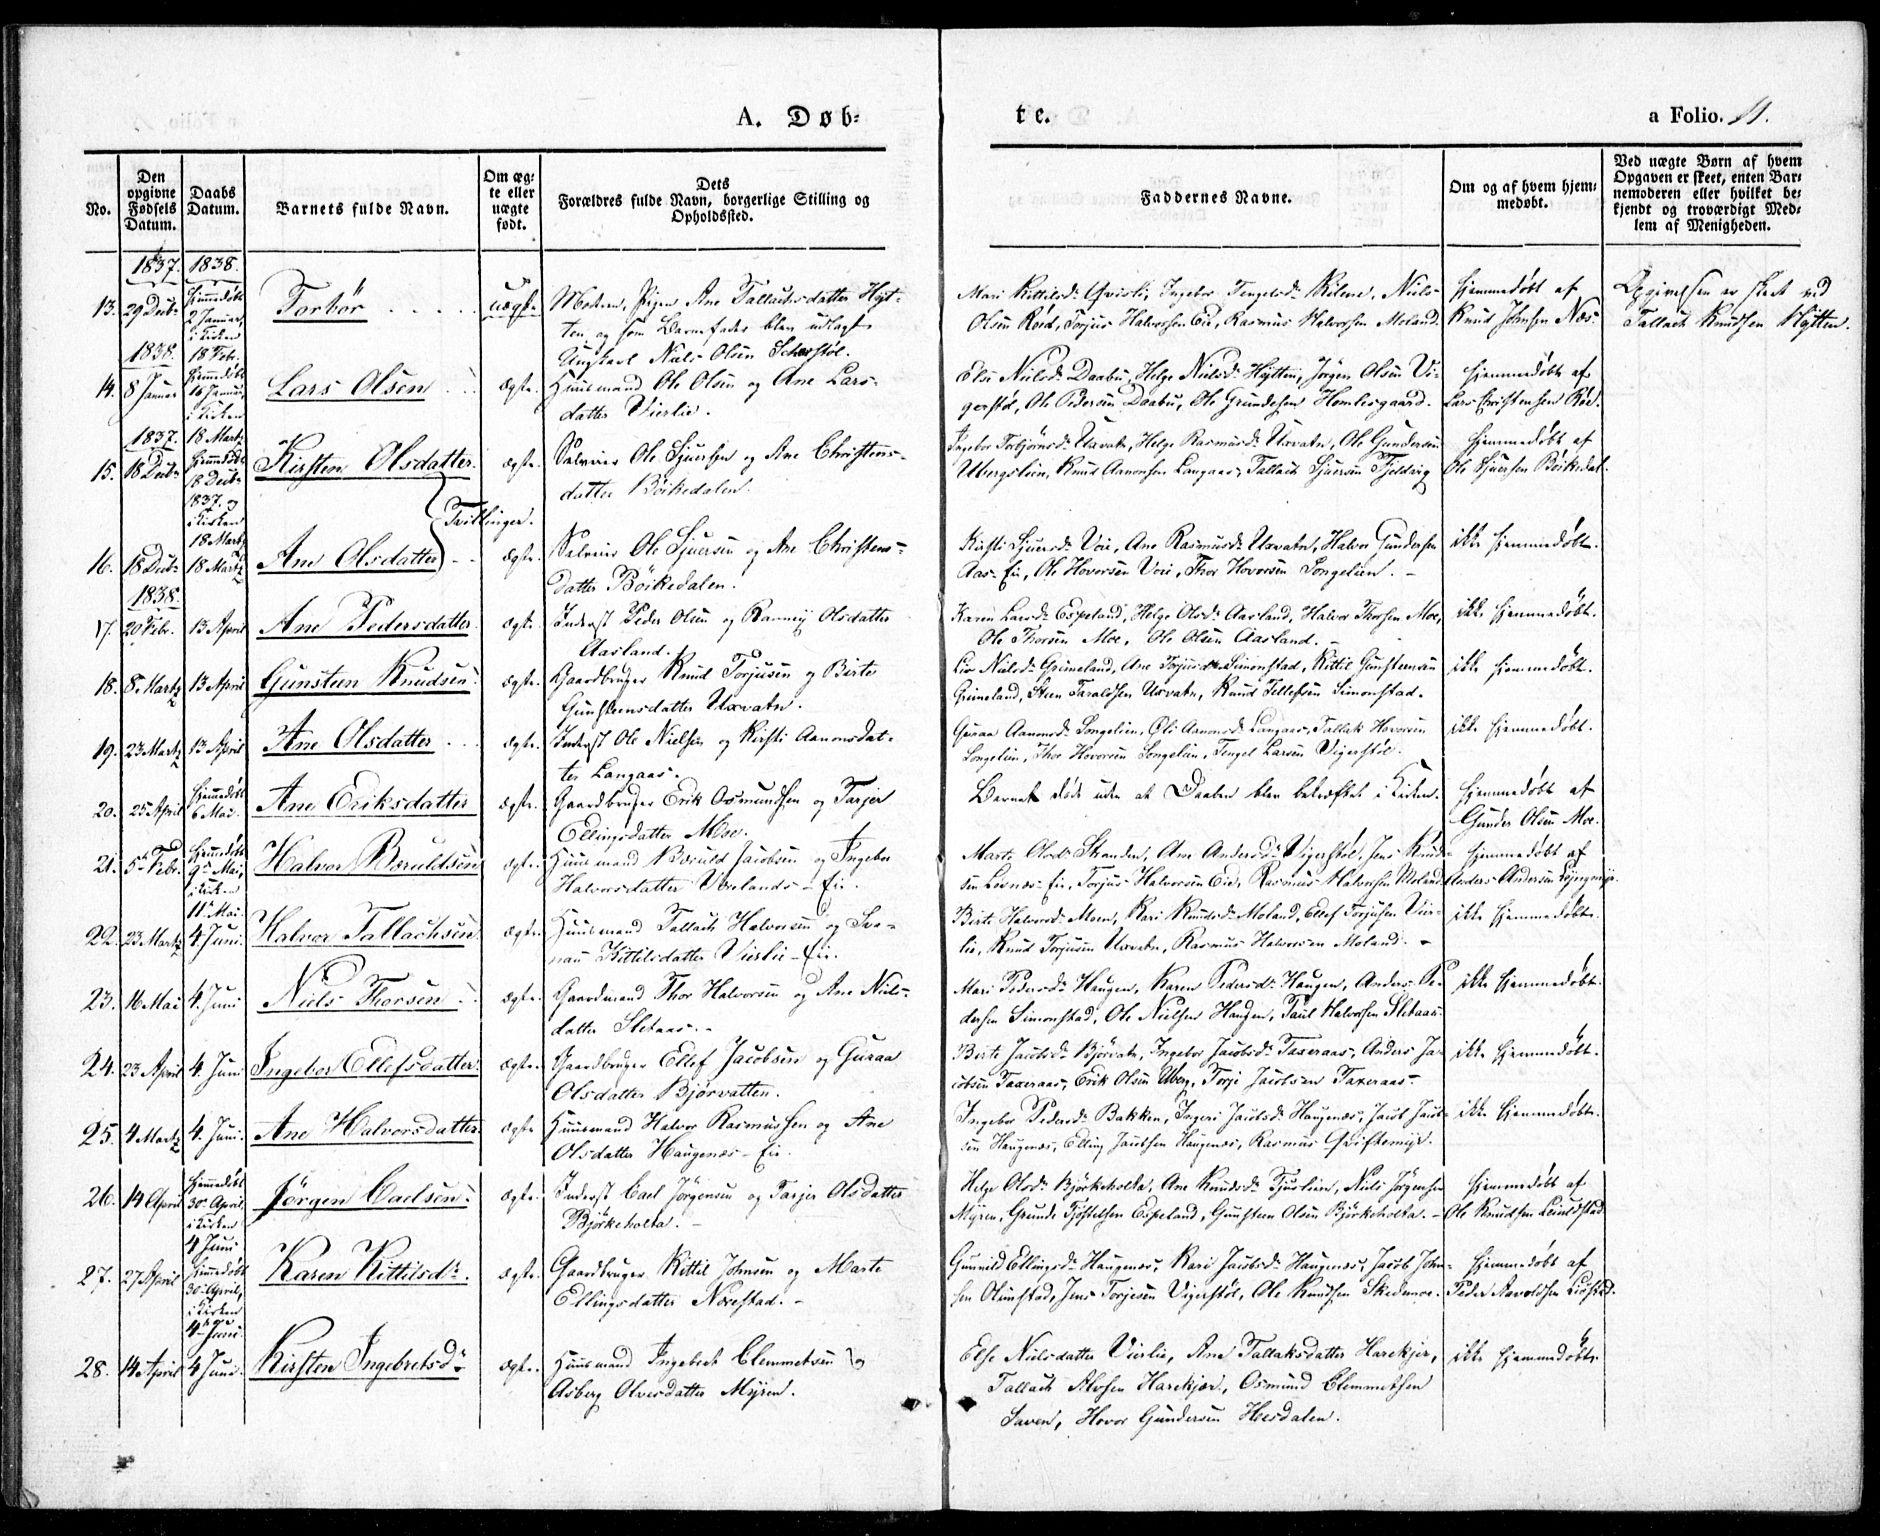 A. Døb=
te.
a Folio. 11.
No.
Den opgivne Fødsels Datum.
Daabs Datum.
Barnets fulde Navn.
Om ægte eller uægte født.
Dets Forældres fulde Navn, borgerlige Stilling og Opholdssted.
Faddernes Navne.
Om og af hvem hjemmedøbt.
Ved uægte Børn af hvem Opgaven er skeet, enten Barnemoderen eller hvilket bekjendt og troværdigt Medlem af Menigheden.
1837. 1838.
13. 29 Decbr hjemmedøbt 2 Januar, i Kirken 18 Febr. Torbör uægte. Moderen, Pigen Ane Tallachsdatter Hyt-
ten, og som Barnefader blev udlagt
Ungkarl Niels Olsen
Mari Kittilsd. Ingebor Tengelsd. Niels
Olsen Torjus Halvorsen Eie, Rasmus Halvorsen Moland.
hjemmedøbt af
Knud Johnsen Næs.
Opgivelsen er skeet ved
Tallach Knudsen Hytten.
1838.
14. 8 Januar hjemmedøbt 16 Januar, i Kirken 18 Martz Lars Olsen ægte. Huusmand Ole Olsen og Ane Lars-
datter Vierlie.
Else Nielsd. Daabu, Helge Nielsd. Hytten, Jörgen Olsen Vi-
gerstöl, Ole Pedersen Daabu, Ole Grundesen Hemlesgaard.
hjemmedøbt af
Lars Christensen
1837.
15. 18 Decbr hjemmedøbt 18 Decbr 1837. og i Kirken 18 Martz Kirsten Olsdatter ægte. Ole Sjursen og Ane Christens-
datter Böikedalen.
Ingebor Torbjörnsd. Uxvatn, Helge Rasmusd. Uxvatn, Ole Gundersen
Ubergslien, Knud Aanonsen Langaas, Tallach Sjursen
hjemmedøbt af
Ole Sjursen Böikedal.
Tvillinger.
16. 18 Decbr 18 Martz Ane Olsdatter ægte. Ole Sjursen og Ane Christens-
datter Böikedalen.
Kirsti Sjursd. Voie, Ane Rasmusd. Uxvatn, Halvor Gundersen
Aas-Eie, Ole Hovorsen Voie, Thor Hovorsen Songelien.
ikke hjemmedøbt.
1838.
17. 20 Febr. 13 April Ane Pedersdatter ægte. Inderst Peder Olsen og Olsdatter
Aasland.
Karen Larsd. Espeland, Helge Olsd. Aasland, Halvor Thorsen Moe,
Ole Thorsen Moe, Ole Olsen Aasland.
ikke hjemmedøbt.
18. 8 Martz 13 April Gunsteen Knudsen ægte. Gaardbruger Knud Torjusen og Birte
Gunsteensdatter Uxvatn.
Liv Nielsd. Grimeland, Ane Torjusd. Simonstad, Kittil Gunsteensen
Grimeland, Steen Taraldsen Uxvatn, Knud Tellefsen Simonstad.
ikke hjemmedøbt.
19. 23 Martz 13 April Ane Olsdatter ægte. Inderst Ole Nielsen og Kirsti Aanonsdat-
ter Langaas.
Guroe Aanonsd. Songelien, Aanonsd. Langaas, Tallak Hovorsen
Songelien, Thor Hovorsen Songelien, Tengel Larsen Vigerstöl.
ikke hjemmedøbt.
20. 25 April hjemmedøbt 6 Mai. Ane Eriksdatter ægte. Gaardbruger Erik Osmundsen og Tarjer
Ellingsdatter Moe.
Barnet døde uden at Daaben blev bekræftet i Kirken.
hjemmedøbt af
Gunder Olsen Moe.
21. 5 Febr. hjemmedøbt 9 Mai, i Kirken 11 Mai. Halvor Beruldsen ægte. Huusmand Beruld Jacobsen og Ingebor
Halvorsdatter Eie.
Marte Olsd. Stranden, Ane Andersd. Vigerstöl, Jens Knud-
sen Torjus Halvorsen Eie, Rasmus Halvorsen Moland.
hjemmedøbt af
Anders Andersen
22. 23 Martz 4. Juni. Halvor Tallachsen ægte. Huusmand Tallach Halvorsen og Sva-
nau Kittilsdatter Vierlie-Eie.
Birte Halvorsd. Moen, Kari Knudsd. Moland, Ellef Torjusen Vier-
lie, Knud Torjusen Uxvatn, Rasmus Halvorsen Moland.
ikke hjemmedøbt.
23. 16 Mai 4. Juni Niels Thorsen ægte. Gaardmand Thor Halvorsen og Ane Niels-
datter Sletaas.
Mari Pedersd. Haugen, Karen Pedersd. Haugen, Anders Pe-
dersen Simonstad, Ole Nielsen Haugen, Paul Halvorsen Sletaas.
ikke hjemmedøbt.
24. 23 April 4. Juni Ingebor Ellefsdatter ægte. Gaardbruger Ellef Jacobsen og Guraa
Olsdatter Bjørvatten.
Birte Jacobsd. Bjørvatn, Ingebor Jacobsd. Taxeraas, Anders Ja-
cobsen Taxeraas, Erik Olsen Uberg, Torje Jacobsen Taxeraas.
ikke hjemmedøbt.
25. 4 Martz 4. Juni. Ane Halvorsdatter. ægte Huusmand Halvor Rasmussen og Ane
Olsdatter Haugenæs-Eie.
Ingebor Pedersd. Bakken, Ingeri Jacobsd. Haugenæs, Jacob Jacob-
sen Haugenæs, Elling Jacobsen Haugenæs, Rasmus
ikke hjemmedøbt.
26. 14 April hjemmedøbt 30 April, i Kirken 4 Juni Jörgen Carlsen ægte. Inderst Carl Jörgensen og Tarjer Olsdatter
Björkeholta.
Helge Olsd. Björkeholta, Ane Knudsd. Niels Jörgensen
Myren, Grunde Tjöstelsen Espeland, Gunsteen Olsen Björkeholta.
hjemmedøbt af
Ole Knudsen
27. 27 April hjemmedøbt 30 April, i Kirken 4 Juni. Karen Kittilsdr. ægte. Gaardbruger Kittil Johnsen og Marte
Ellingsdatter Nævestad.
Gunvild Ellingsd. Haugenæs, Kari Jacobsd. Haugenæs, Jacob John-
sen Olimstad, Jens Torjesen Vigerstöl, Ole Knudsen Skedsmoe.
hjemmedøbt af
Peder Aavoldsen
28. 14 April 4 Juni. Kirsten Ingebretsdr ægte. Huusmand Ingebret Clemmetsen og
Asberg Olversdatter Myren.
Else Nielsdatter Vierlie, Ane Tallaksdatter Harekjær,
Tallach Alvsen Harekjær, Osmund Clemmetsen
Saven, Hovor Gundersen
ikke hjemmedøbt.